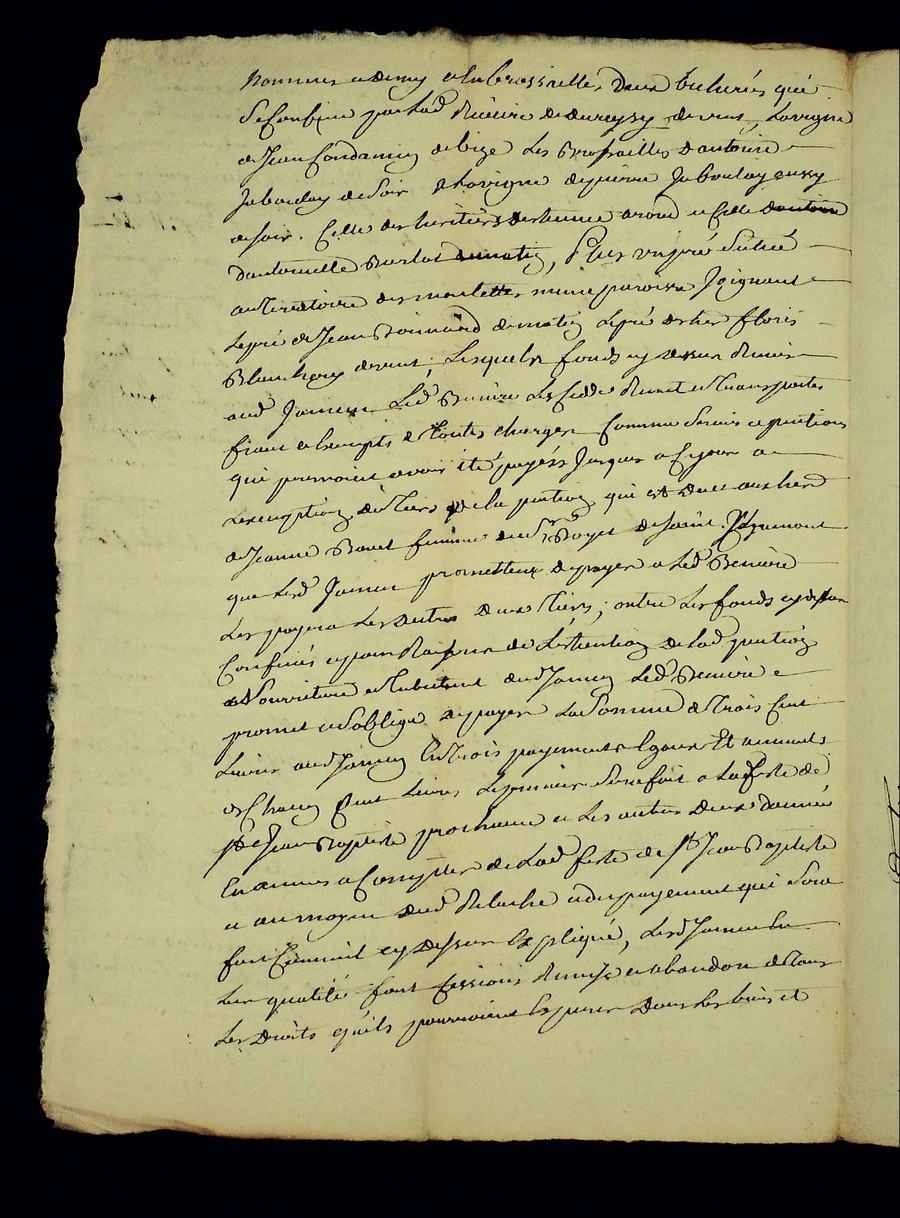 nommes a demy et la brossaille, deux bicherés qui
Se Confine par lad Riviere de dureyzy de vent, la vigne
de Jean Condamin de bize les Brossailles d'antoine
Jaboulay de Soir & la vigne de pierre Jaboulay aussy
de soir. Celle des heritiers d'etienne arod et Celle
d'antoinette Burlat, Plus un pré Scitué
au Territoire des moulettes meme paroisse Joignant
le pré de Jean Bonnard de matin le pré des her floris
Blanchery de vent; lesquels fonds cy dessus
aud Jamen led Beniere les Cedde Remet et transporte
franc et exempts de toutes charges Comme Servis et pentions
qui pourroient avoir été payés Jusques a Ce jour a
l'exemption du tiers de la pention qui est due aux her
de Jeanne Bouet femme de sr Boyer de saint
que lesd Jamen promettent de payer a led Beniere
les payera les autres deux tiers; outre les fonds cy dessus
Confinés et pour Raison de l'extention de lad pention
Nourriture et habitant aud Jamen led Beniere
promet et s'oblige de payer la Somme de trois Cent
Livres aud Jamen En trois payements Egaux Et annuels
de Chacun Cent Livres le premier Sera fait a la feste de
St Jean Baptiste prochaine et les autres deux d'année
En année a Compter de lad feste de St Jean Baptiste
et au moyen dud Relache et du payement qui Sera
fait Comme il cy dessus Expliqué, lesd Jamen En
leur qualité font Cession Remise et abandon de tous
les Droits qu'ils pourroient Esperer dans les biens et